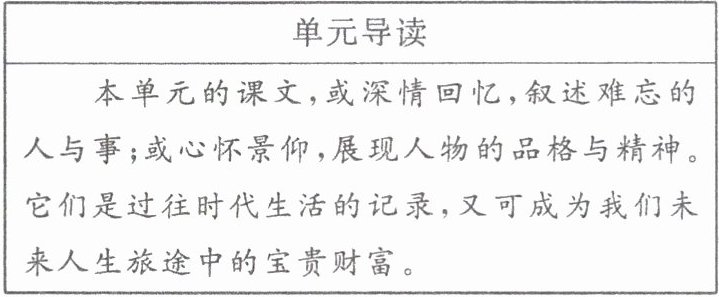 单元导读
本单元的课文,或深情回忆,叙述难忘的
人与事;或心怀景仰,展现人物的品格与精神。
它们是过往时代生活的记录,又可成为我们未
来人生旅途中的宝贵财富。